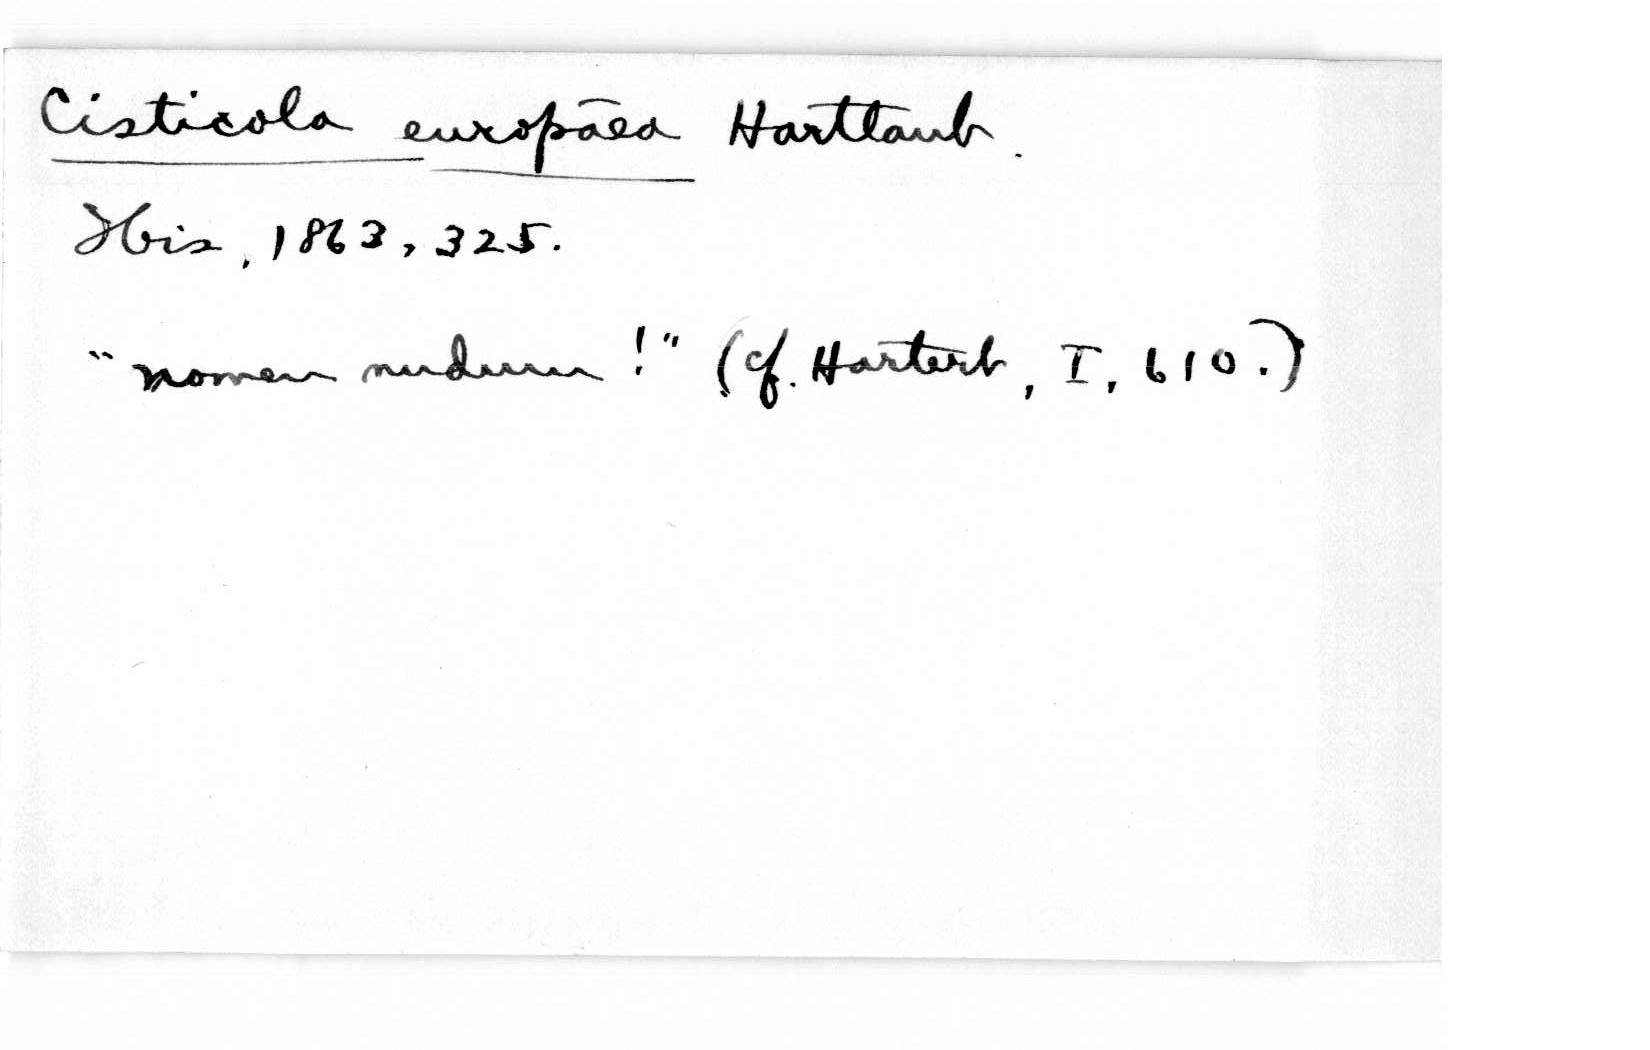 Cisticola europāea Hartlaub.
Ibis, 1863, 325.
"nomen nudum!" (cf. Hartert, I, 610.)